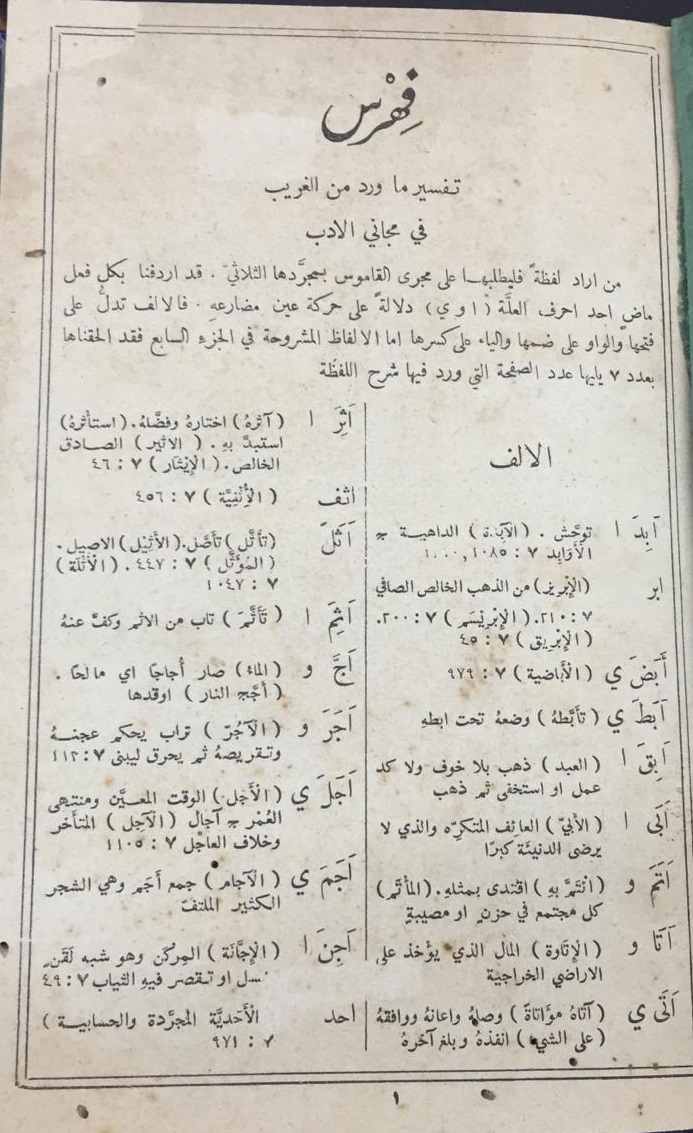 فِهْرِس
تفسير ما ورد من الغريب
في مجاني الادب
من اراد لفظةً فليطلبها على مجرى القاموس بمجرَّدها الثلاثيّ . قد اردفنا بكل فعل
ماضٍ احد احرف العلَّة ( ا و ي ) دلالةً على حركة عين مضارعهِ . فالالف تدلُّ على
فتحها والواو على ضمها والياء على كسرها اما الالفاظ المشروحة في الجزء السابع فقد الحقناها
بعدد ٧ يليها عدد الصفحة التي ورد فيها شرح اللفظة
الالف
اَبِدَ ا توحَّش . ( الآبدة ) الداهية ج
الأوَابِد ٧ : ١٠٨٥ , ١٠٠٠
ابر (الإِبريز) من الذهب الخالص الصافي
٧ : ٢١٠. ( الإِبرِيْسَم ) ٧ : ٢٠٠.
( الإِبريق ) ٧ : ٤٥
أَبَضَ ي ( الأَباضية ) ٧ : ٩٧٩
اَبَطَ ي ( تأَبَّطهُ ) وضعهُ تحت ابطهِ
اَبِقَ ا ( العبد ) ذهب بلا خوف ولا كد
عمل او استخفى ثم ذهب
اَبَى ا ( الأَبيّ ) العائف المتكرّه والذي لا
يرضى الدنيئة كبرًا
اَتَمَ و ( ائْتَمَّ بهِ ) اقتدى بمثلهِ . (المأْتَم)
كل مجتمع في حزنٍ او مصيبةٍ
اَتَا و ( الإِتاوة ) المال الذي يؤْخذ على
الاراضي الخراجية
اَتَى ي ( آتاهُ مؤَاتاةً ) وصلهُ واعانهُ ووافقهُ
( على الشيء ) انفذهُ وبلغ آخرهُ
اَثِرَ ا ( آثرهُ ) اختارهُ وفضَّلهُ. ( استأْثرهُ )
استبدَّ بهِ . ( الاثير ) الصادق
الخالص. ( الإِيثار ) ٧ : ٤٦
اثف ( الأُثْفِيَّة ) ٧ : ٤٥٦
اَثَلَ ( تأَثَّل ) تأصَّل. ( الأَثِيْل ) الاصيل .
( المُوَّثَّل ) ٧ : ٤٤٧. ( الأَثلة )
٧ : ١٠٤٧
اَثِمَ ا ( تَأَثَّمَ ) تاب من الاثم وكفَّ عنهُ
اَجَّ و ( الماء ) صار أُجاجًا اي مالحًا .
( أَجَّج النار ) اوقدها
اَجَرَ و ( الآجُرّ ) تراب يحكم عجنهُ
وتقريصهُ ثم يحرق ليبنى ٧ : ١١٢
اَجَلَ ي ( الأَجَل ) الوقت المعيَّن ومنتهى
العُمْر ج آجال ( الآجِل ) المتأَخر
وخلاف العاجل ٧ : ١١٠٥
اَجَمَ ي ( الآجام ) جمع أَجَم وهي الشجر
الكثير الملتف
اَجِنَ ا ( الإِجَّانَة ) المِركَن وهو شبه لَقَن
سل او تقصر فيهِ الثياب ٧ : ٤٩
احد الأَحديَّة المجرَّدة والحسابية )
٧ : ٩٧١
١